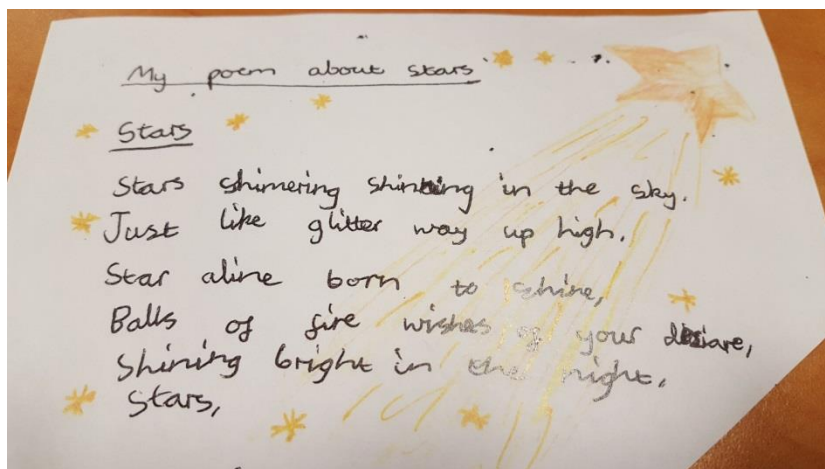 My poem about stars
Stars
Stars shimering shining in the sky.
Just like glitter way up high.
Star aline born to shine,
Balls of fire wishes of your desiare,
Shining bright in the night.
Stars,